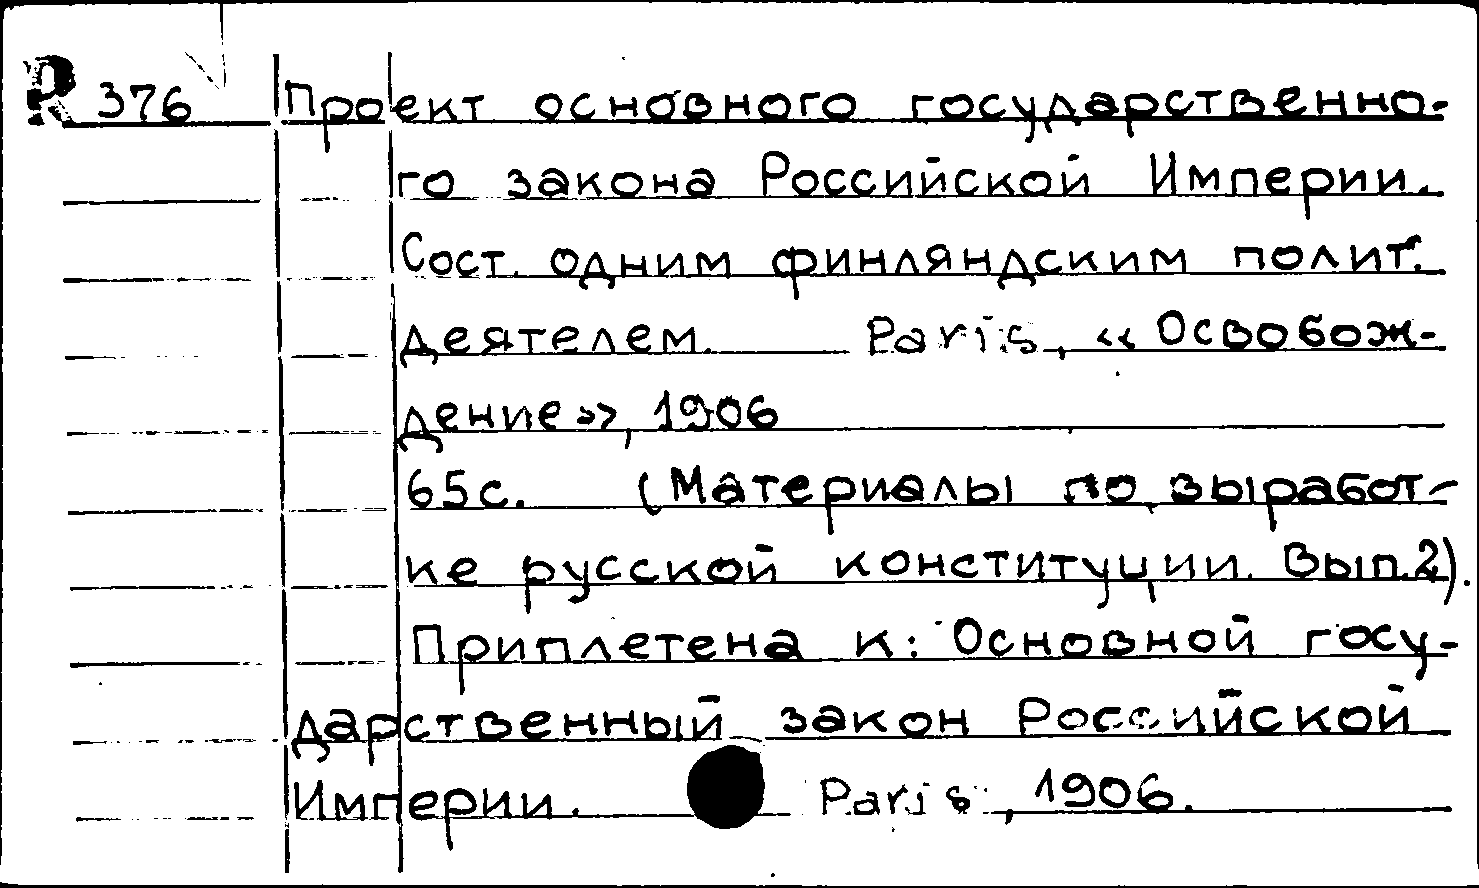 R 376 Проект основного государственно-
го закона Российской Империи.
Сост. одним финляндским полит.
деятелем. Paris, «Освобож-
дение», 1906
65с. (Материалы по выработ-
ке русской конституции. Вып.2).
Приплетена к: Основной госу-
дарственный закон Российской
Империи. Paris, 1906.